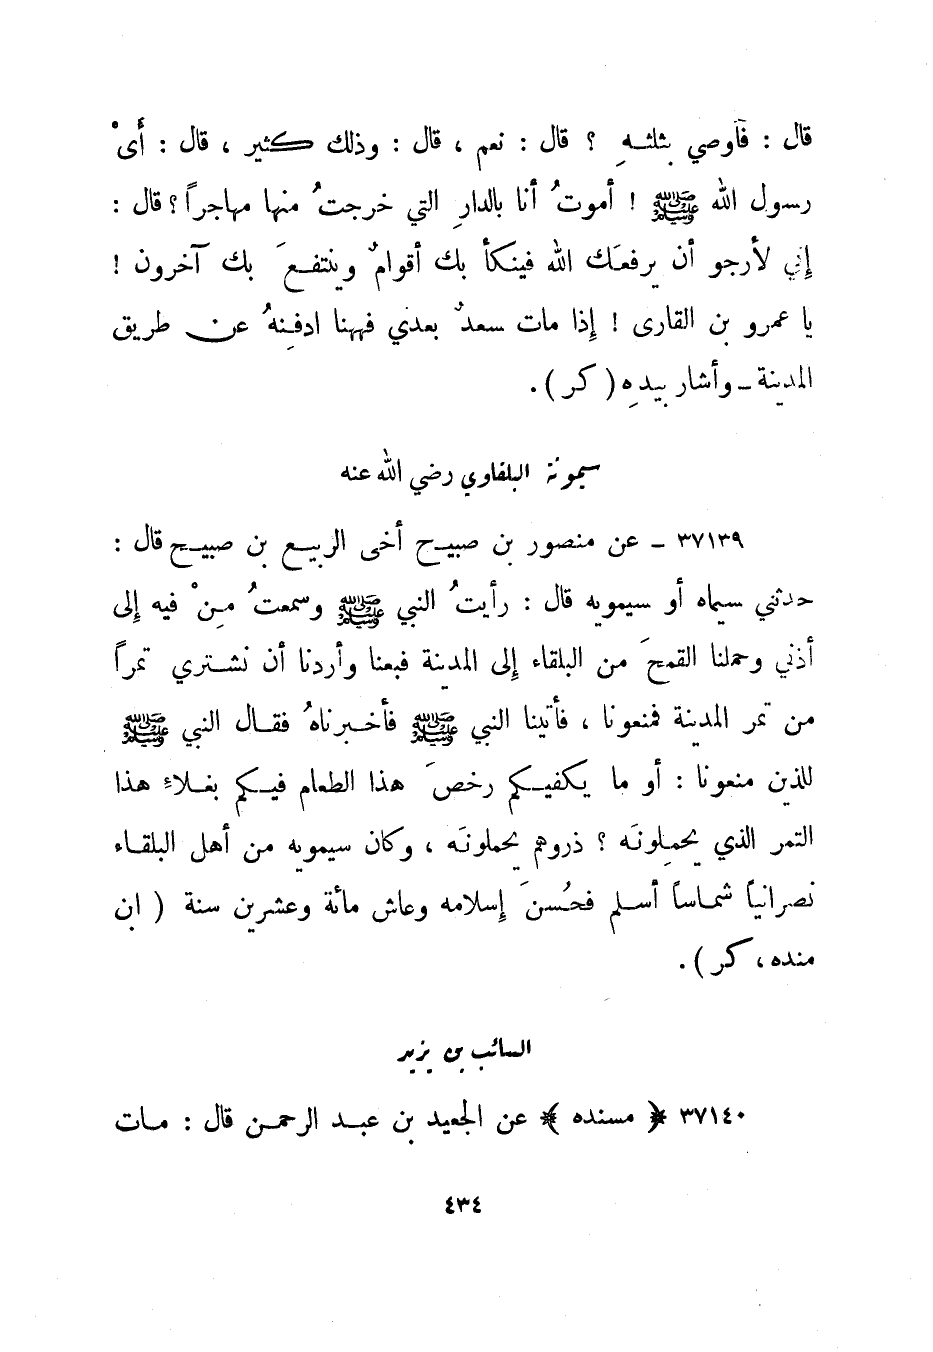 قال : فأوصي بثلثهِ ؟ قال : نعم ، قال : وذلك كثير ، قال : أىْ
رسول الله ﷺ ! أموتُ أنا بالدارِ التي خرجتُ منها مهاجراً ؟ قال :
إني لأرجو أن يرفعَك الله فينكأ بك أقوامٌ وينتفعَ بك آخرون !
يا عمرو بن القارى ! إذا مات سعدٌ بعدي فههنا ادفِنهُ عن طريق
المدينة ــ وأشار بيدِه ( كر ) .
سيمونة البلقاوي رضي الله عنه
٣٧١٣٩ ــ عن منصور بن صبيح أخى الربيع بن صبيح قال :
حدثني سيماه أو سيمويه قال : رأيتُ النبي ﷺ وسمعتُ مِنْ فيه إلى
أذني وحملنا القمحَ من البلقاء إلى المدينة فبعنا وأردنا أن نشتري تمراً
من تمر المدينة فمنعونا ، فأتينا النبي ﷺ فأخبرناهُ فقال النبي ﷺ
للذين منعونا : أو ما يكفيكم رخصَ هذا الطعام فيكم بغلاءِ هذا
التمر الذي يحمِلونَه ؟ ذروهم يحملونَه ، وكان سيمويه من أهل البلقاء
نصرانياً شماساً أسلم فحُسنَ إسلامه وعاش مائة وعشرين سنة ( ابن
منده ، كر ) .
السائب بن يزيد
٣٧١٤٠ ﴿ مسنده ﴾ عن الجعيد بن عبد الرحمن قال : مات
٤٣٤